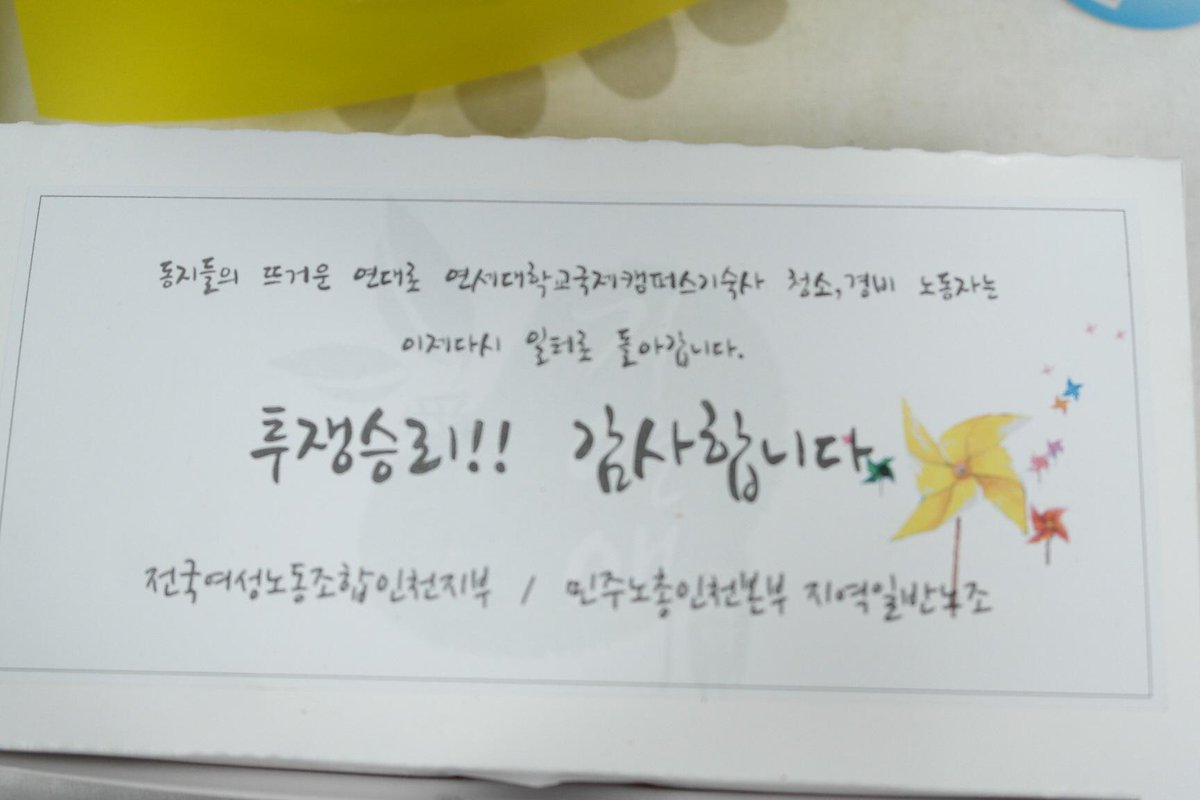 동지들의 뜨거운 연대로 연세대학교국제캠퍼스기숙사 청소,경비 노동자는
이제다시 일터로 돌아갑니다.
투쟁승리!! 감사합니다
전국여성노동조합인천지부 / 민주노총인천본부 지역일반노조